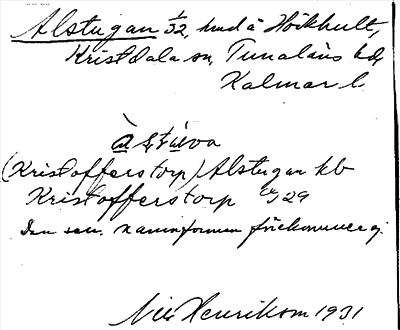 Alstugan 1/32, hmd å Hökhult,
Kristdala sn, Tunaläns hd,
Kalmar l.
à stúva
(Kristofferstorp) Alstugan kb
Kristofferstorp 29
Den sen. namnformen förekommer ej.
Nils Henrikson 1931